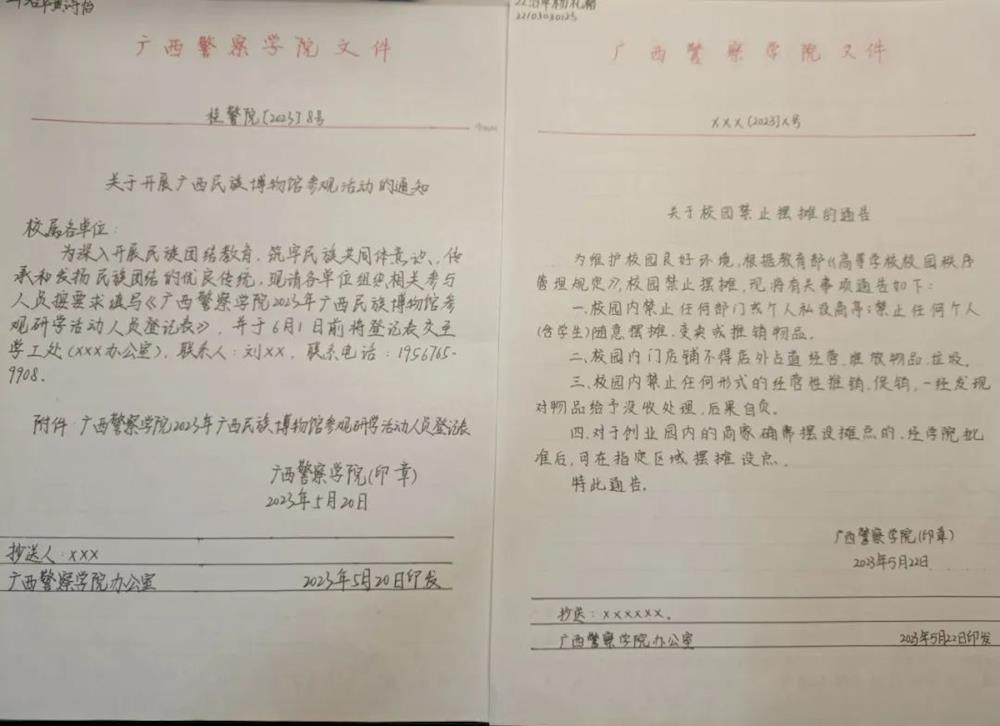 广西警察学院文件
桂警院[2023]8号
关于开展广西民族博物馆参观活动的通知
校属各单位：
为深入开展民族团结教育，筑牢民族共同体意识、传
承和发扬民族团结的优良传统，现请各单位组织相关参与
人员按要求填写《广西警察学院2023年广西民族博物馆参
观研学活动人员登记表》，并于6月1日前将登记表交至
学工处(XXX办公室)，联系人：刘XX，联系电话：1956765-
9908.
附件：广西警察学院2023年广西民族博物馆参观研学活动人员登记表
广西警察学院(印章)
2023年5月20日
抄送人：XXX
广西警察学院办公室 2023年5月20日印发
2203030125
广西警察学院文件
XXX[2023]X号
关于校园禁止摆摊的通告
为维护校园良好环境,根据教育部《高等学校校园秩序
管理规定》,校园禁止摆摊,现将有关事项通告如下：
一.校园内禁止任何部门或个人私设商亭;禁止任何个人
(含学生)随意摆摊、变卖或推销物品。
二、校园内门店铺不得店外占道经营、堆放物品、垃圾。
三.校园内禁止任何形式的经营性推销、促销,一经发现
对物品给予没收处理,后果自负。
四.对于创业园内的商家确需摆设摊点的、经学院批
准后,可在指定区域摆摊设点。
特此通告。
广西警察学院(印章)
2023年5月22日
抄送：XXXXXX。
广西警察学院办公室 2023年5月22日印发